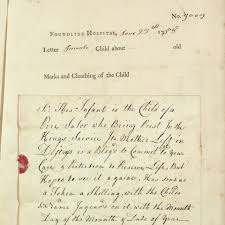 No. 9009
FOUNDLING HOSPITAL, June 23d 1758
Letter Female Child about old
Marks and Cloathing of the Child
Sr This Infant is the Child of a
Pore Salor who Being Prest In the
Kings Service Its Mother Left in
Distress is a Blige to Commit to your
Care & Protection to Preserve Life, But
Hopes to see it a gaine, Has sent as
a Token a Shilling with the Childs
Name Ingraved on it, with the Mounth
Day of the Mounth & Date of Year